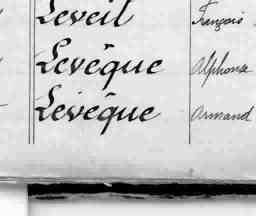 Leveil François
Levêque Alphonse
Levêque Armand